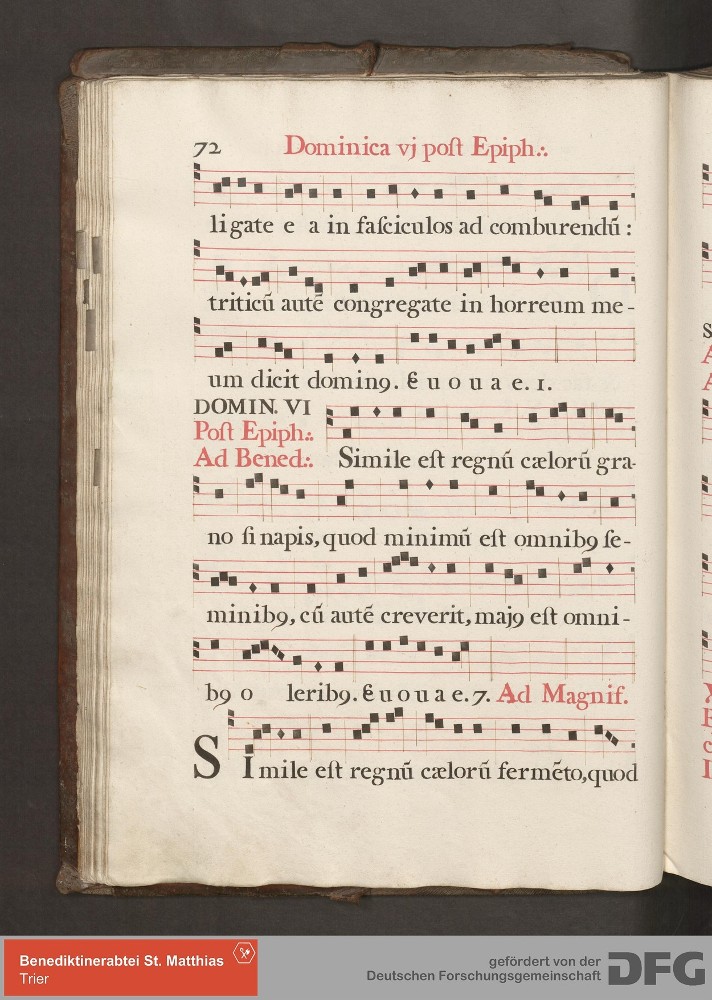 72 Dominica vj poſt Epiph.∙.
ligate e a in faſciculos ad comburendū :
triticū autē congregate in horreum me-
um dicit dominꝰ. E u o u a e. 1.
DOMIN. VI
Poſt Epiph.∙.
Ad Bened.∙. Simile eſt regnū cælorū gra-
no ſinapis, quod minimū eſt omnibꝰ ſe-
minibꝰ, cū autē creverit, majꝰ eſt omni-
bꝰ o leribꝰ. E u o u a e. 7. Ad Magnif.
SImile eſt regnū cælorū fermēto, quod
Benediktinerabtei St. Matthias
Trier
gefördert von der
Deutschen Forschungsgemeinschaft DFG